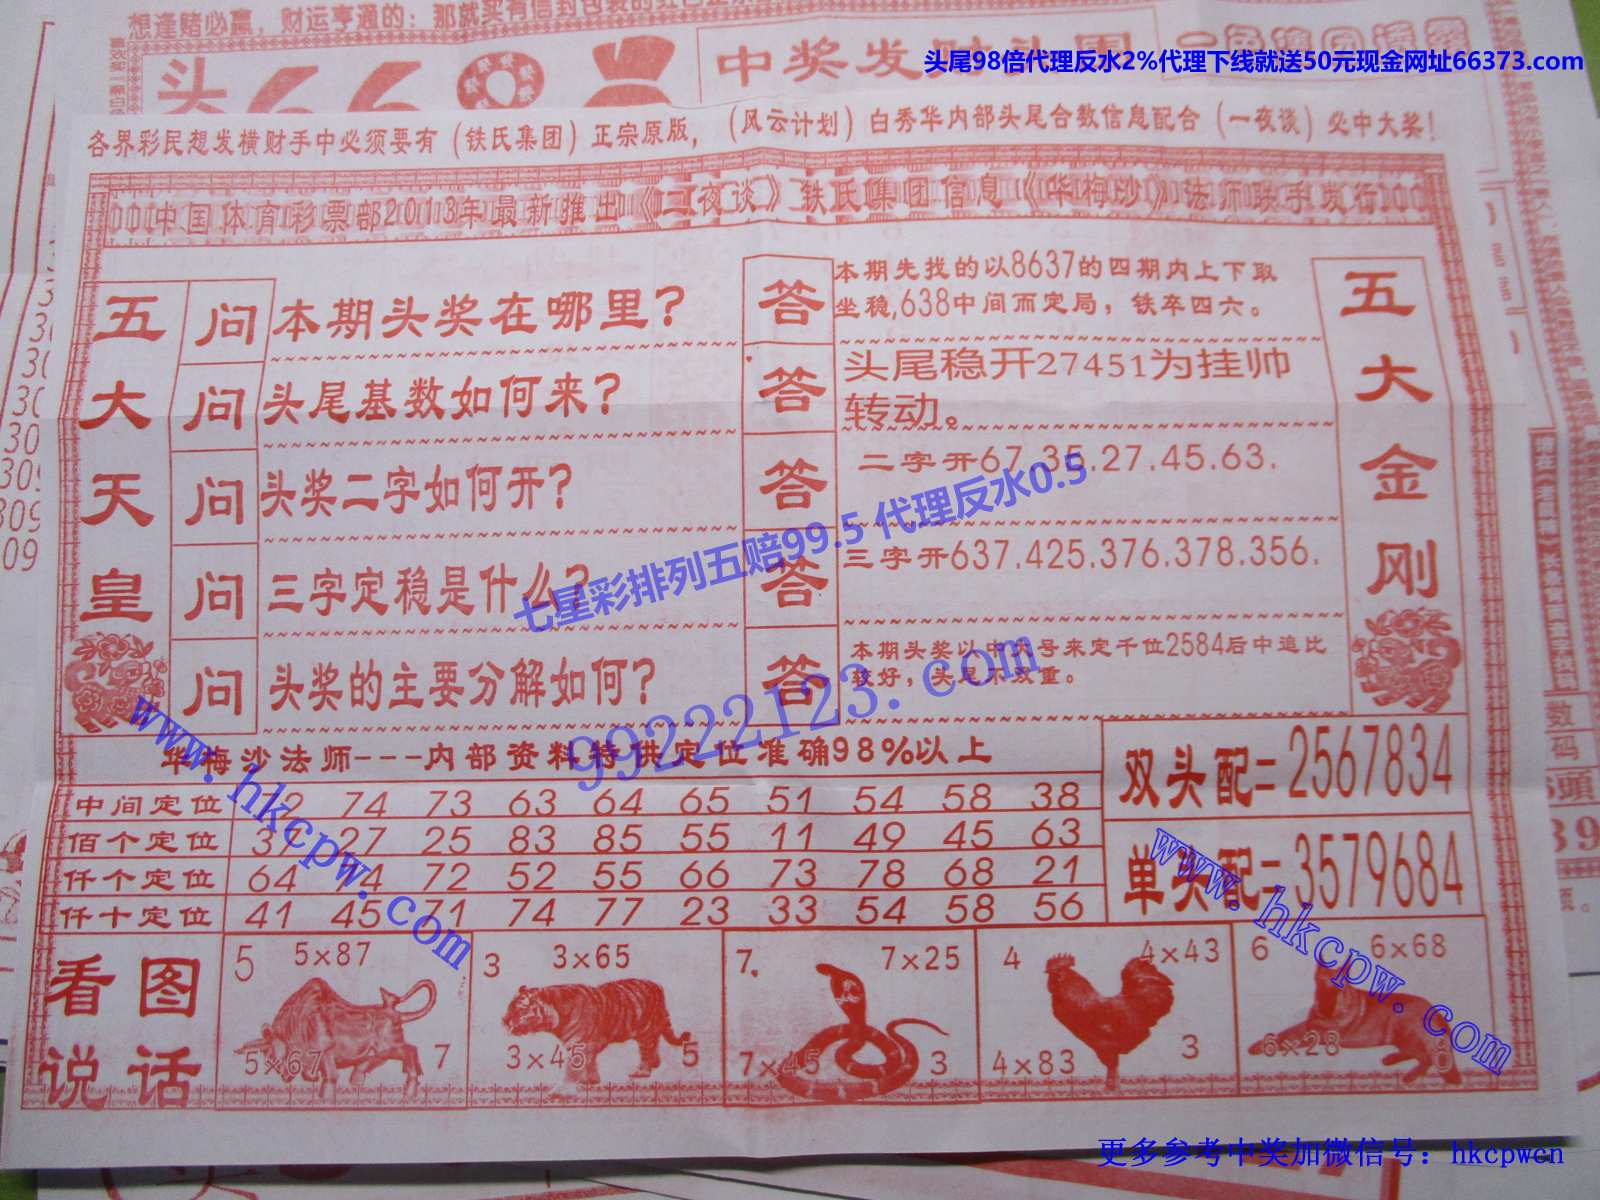 想逢赌必赢，财运亨通的：那就买有信封包装的红白
头 66
中奖发财
头尾98倍代理反水2%代理下线就送50元现金网址66373.com
各界彩民想发横财手中必须要有（铁氏集团）正宗原版，（风云计划）白秀华内部头尾合数信息配合（一夜谈）必中大奖！
中国体育彩票部2013年最新推出《二夜谈》铁氏集团信息《华梅沙》法师联手发行
五大天皇
问 本期头奖在哪里？
答 本期先找的以8637的四期内上下取
坐稳,638中间而定局，铁卒四六。
问 头尾基数如何来？
答 头尾稳开27451为挂帅
转动。
问 头奖二字如何开？
答 二字开67.35.27.45.63.
问 三字定稳是什么？
答 三字开637.425.376.378.356.
问 头奖的主要分解如何？
答 本期头奖以中大号来定千位2584后中追比
较好，头尾不双重。
五大金刚
七星彩排列五赔99.5 代理反水0.5
99222123.com
www.hkcpw.com
华梅沙法师---内部资料特供定位准确98%以上
中间定位 2 74 73 63 64 65 51 54 58 38
佰个定位 37 27 25 83 85 55 11 49 45 63
仟个定位 64 4 72 52 55 66 73 78 68 21
仟十定位 41 45 71 74 77 23 33 54 58 56
双头配=2567834
单头配=3579684
www.hkcpw.com
看图说话
5 5×87
5×67 7
3 3×65
3×45 5
7. 7×25
7×45 3
4 4×43
4×83 3
6 6×68
6×28
数
码
頭
309
309
309
09
更多参考中奖加微信号：hkcpwcn